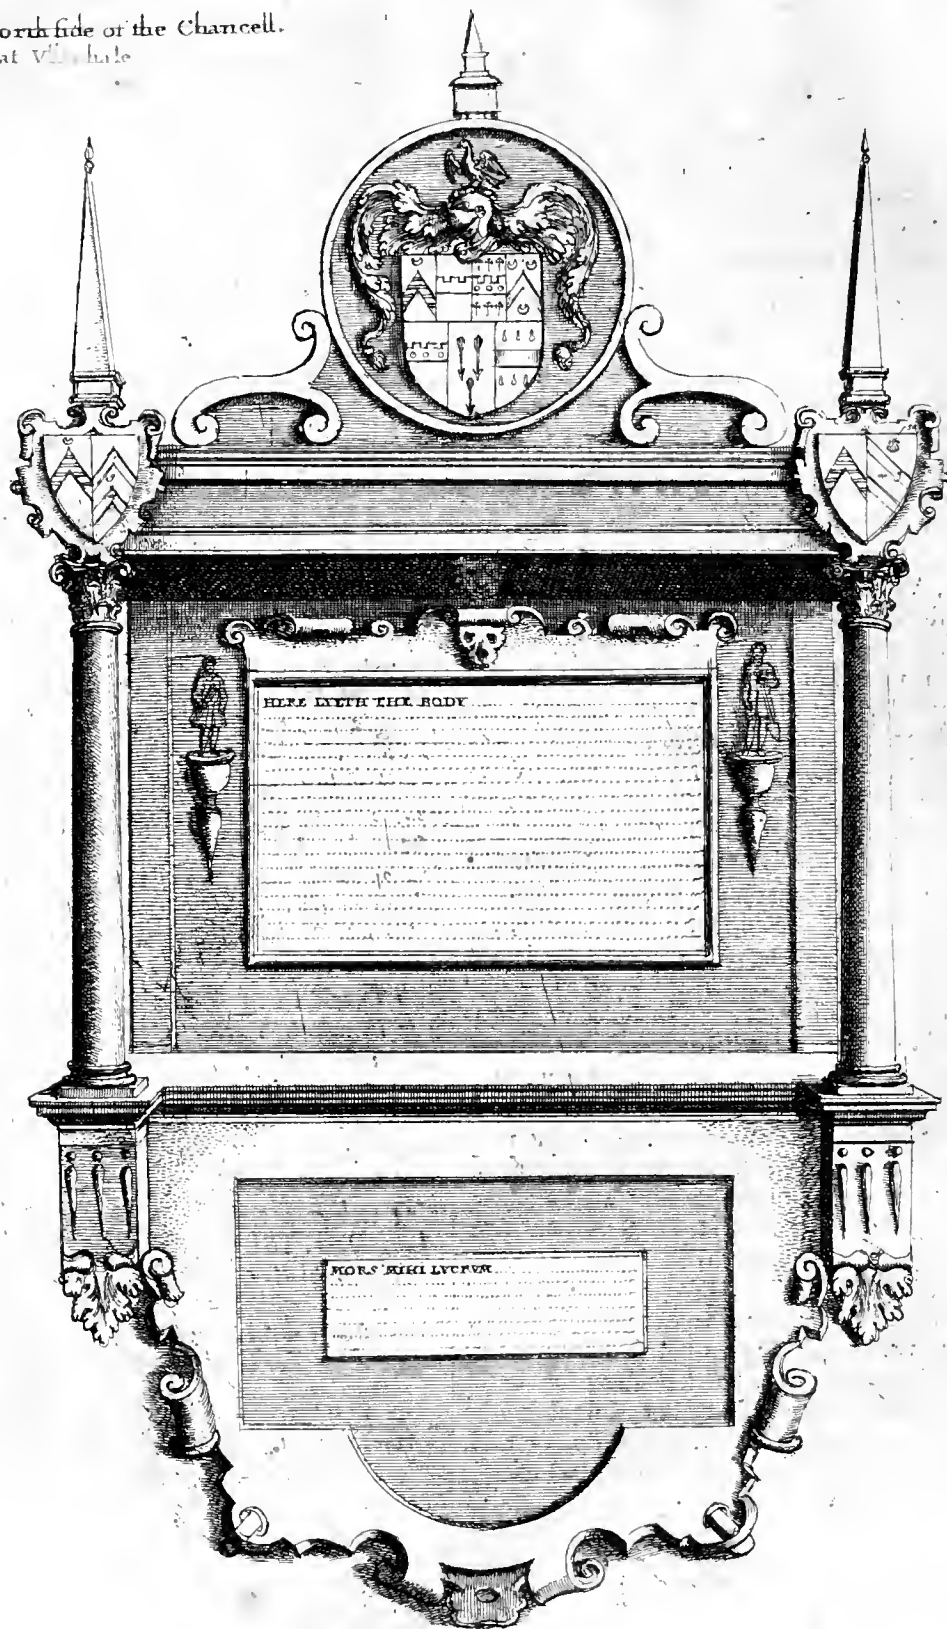 orth side of the Chancell.
at
HERE LYETH THE BODY
MORS MIHI LVCRVM